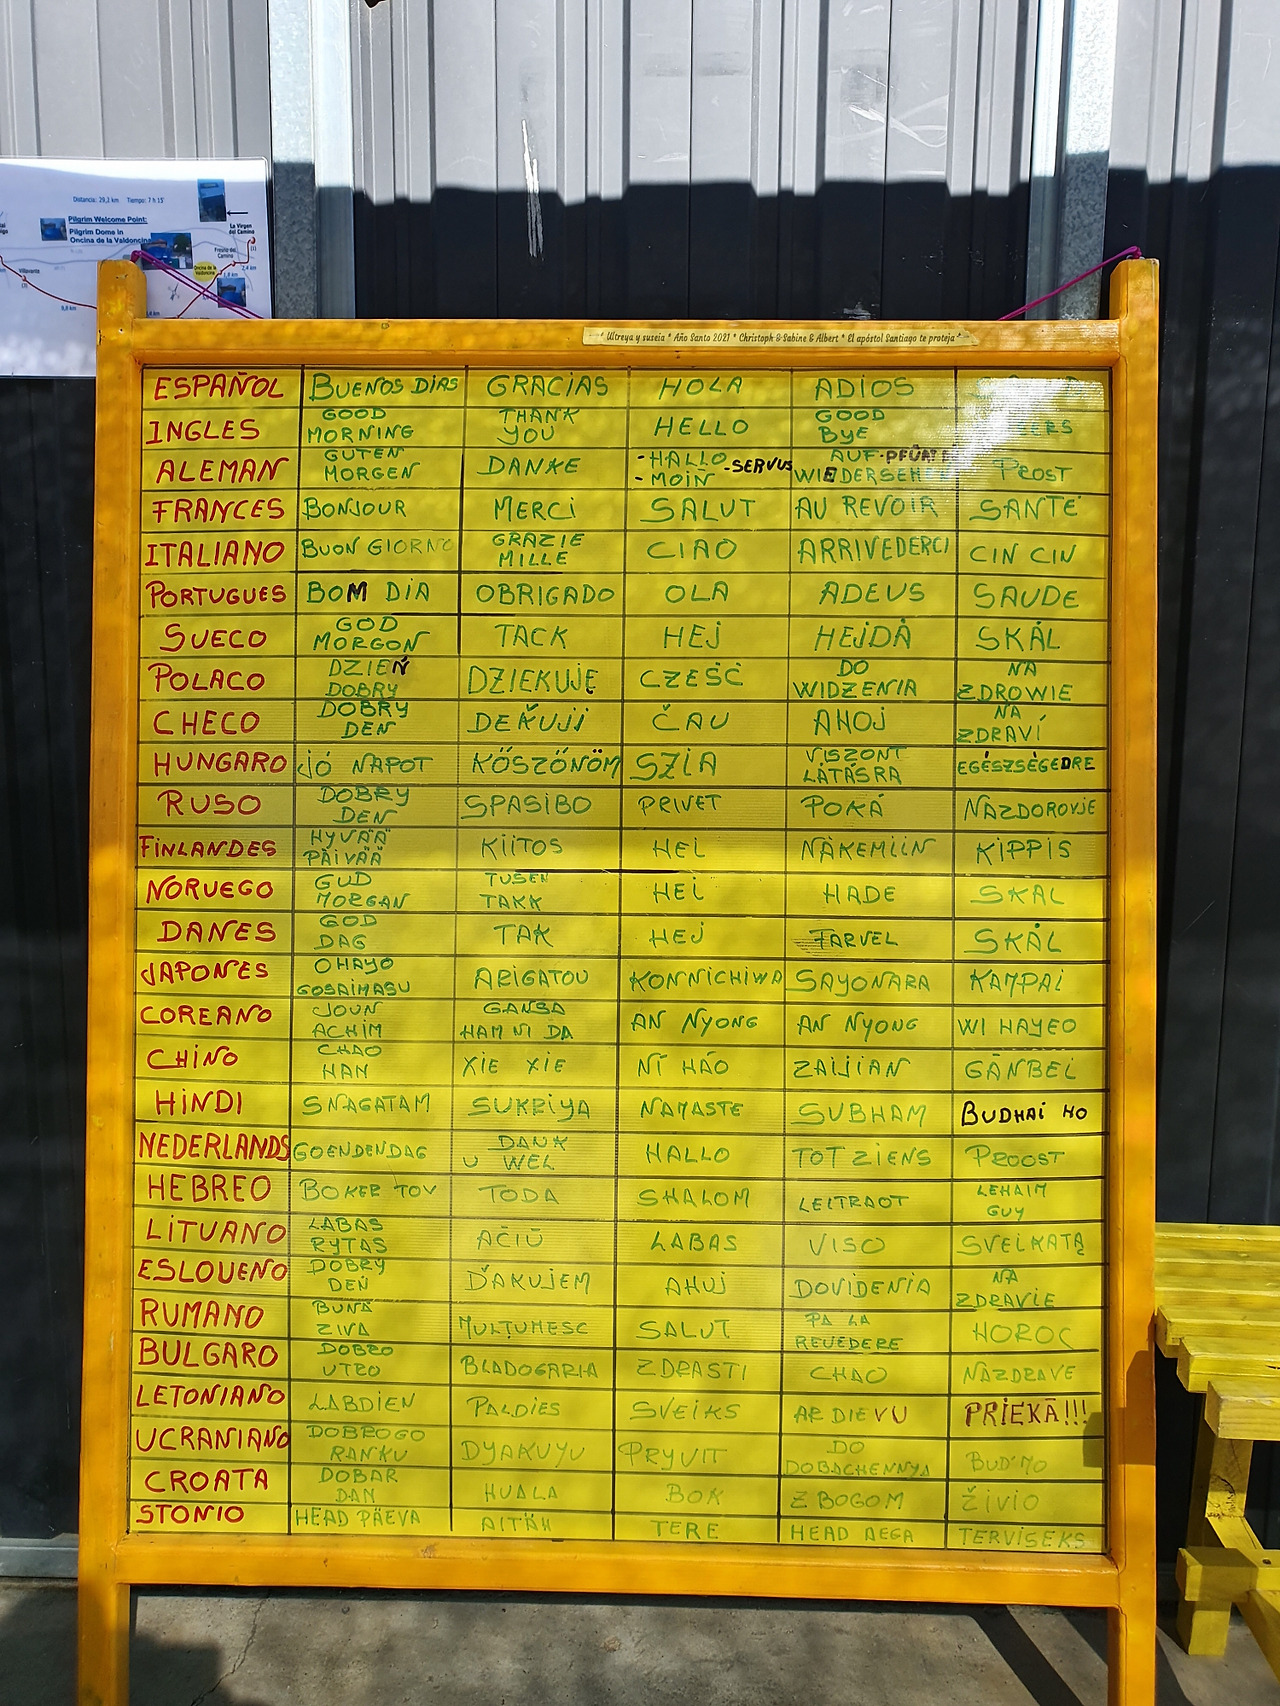 Distancia: 29,2 km Tiempo: 7 h 15'
Pilgrim Welcome Point:
Pilgrim Dome in
Oncina de la Valdoncina
La Virgen
del Camino
Fresno del
Camino
Oncina de la
Valdoncina
Villavante
9,8 km
* Ultreya y suseia * Año Santo 2021 * Christoph & Sabine & Albert * El apóstol Santiago te proteja *
ESPAÑOL BUENOS DÍAS GRACIAS HOLA ADIOS
INGLES GOOD MORNING THANK YOU HELLO GOOD BYE
ALEMAN GUTEN MORGEN DANKE - HALLO - MOIN - SERVUS AUF WIEDERSEH PROST
FRANCES BONJOUR MERCI SALUT AU REVOIR SANTE
ITALIANO BUON GIORNO GRAZIE MILLE CIAO ARRIVEDERCI CIN CIN
PORTUGUES BOM DIA OBRIGADO OLA ADEUS SAUDE
SUECO GOD MORGON TACK HEJ HEJDÅ SKÅL
POLACO DZIEŃ DOBRY DZIEKUJĘ CZEŚĆ DO WIDZENIA NA ZDROWIE
CHECO DOBRY DEN DEKUJI ČAU AHOJ NA ZDRAVÍ
HUNGARO JÓ NAPOT KÖSZÖNÖM SZIA VISZONT LÁTÁSRA EGÉSZSÉGEDRE
RUSO DOBRY DEN SPASIBO PRIVET POKÁ NAZDOROVJE
FINLANDES HYVÄÄ PÄIVÄÄ KIITOS HEI NÄKEMIIN KIPPIS
NORUEGO GUD MORGAN TUSEN TAKK HEI HADE SKAL
DANES GOD DAG TAK HEJ FARVEL SKÅL
JAPONES OHAYO GOSAIMASU ARIGATOU KONNICHIWA SAYONARA KAMPAI
COREANO JOUN ACHIM GAMSA HAM NI DA AN NYONG AN NYONG WI HAYEO
CHINO CHAO HAN XIE XIE NÍ HÁO ZAIJIAN GĀNBEI
HINDI SNAGATAM SUKRIYA NAMASTE SUBHAM BUDHAI HO
NEDERLANDS GOENDENDAG DANK U WEL HALLO TOT ZIENS PROOST
HEBREO BOKER TOV TODA SHALOM LEITRAOT LEHAIM GUY
LITUANO LABAS RYTAS AČIŪ LABAS VISO SVEIKATĄ
ESLOUENO DOBRY DEŇ ĎAKUJEM AHUJ DOVIDENIA NA ZDRAVIE
RUMANO BUNĂ ZIVA MULȚUMESC SALUT PA LA REVEDERE HOROC
BULGARO DOBRO UTRO BLADOGARIA ZDRASTI CHAO NAZDRAVE
LETONIANO LABDIEN PALDIES SVEIKS AR DIEVU PRIEKĀ!!!
UCRANIANO DOBROGO RANKU DYAKUYU PRYVIT DO DOBACHENNYA BUD'MO
CROATA DOBAR DAN HUALA BOK ZBOGOM ŽIVIO
STONIO HEAD PÄEVA AITÄH TERE HEAD AEGA TERVISEKS